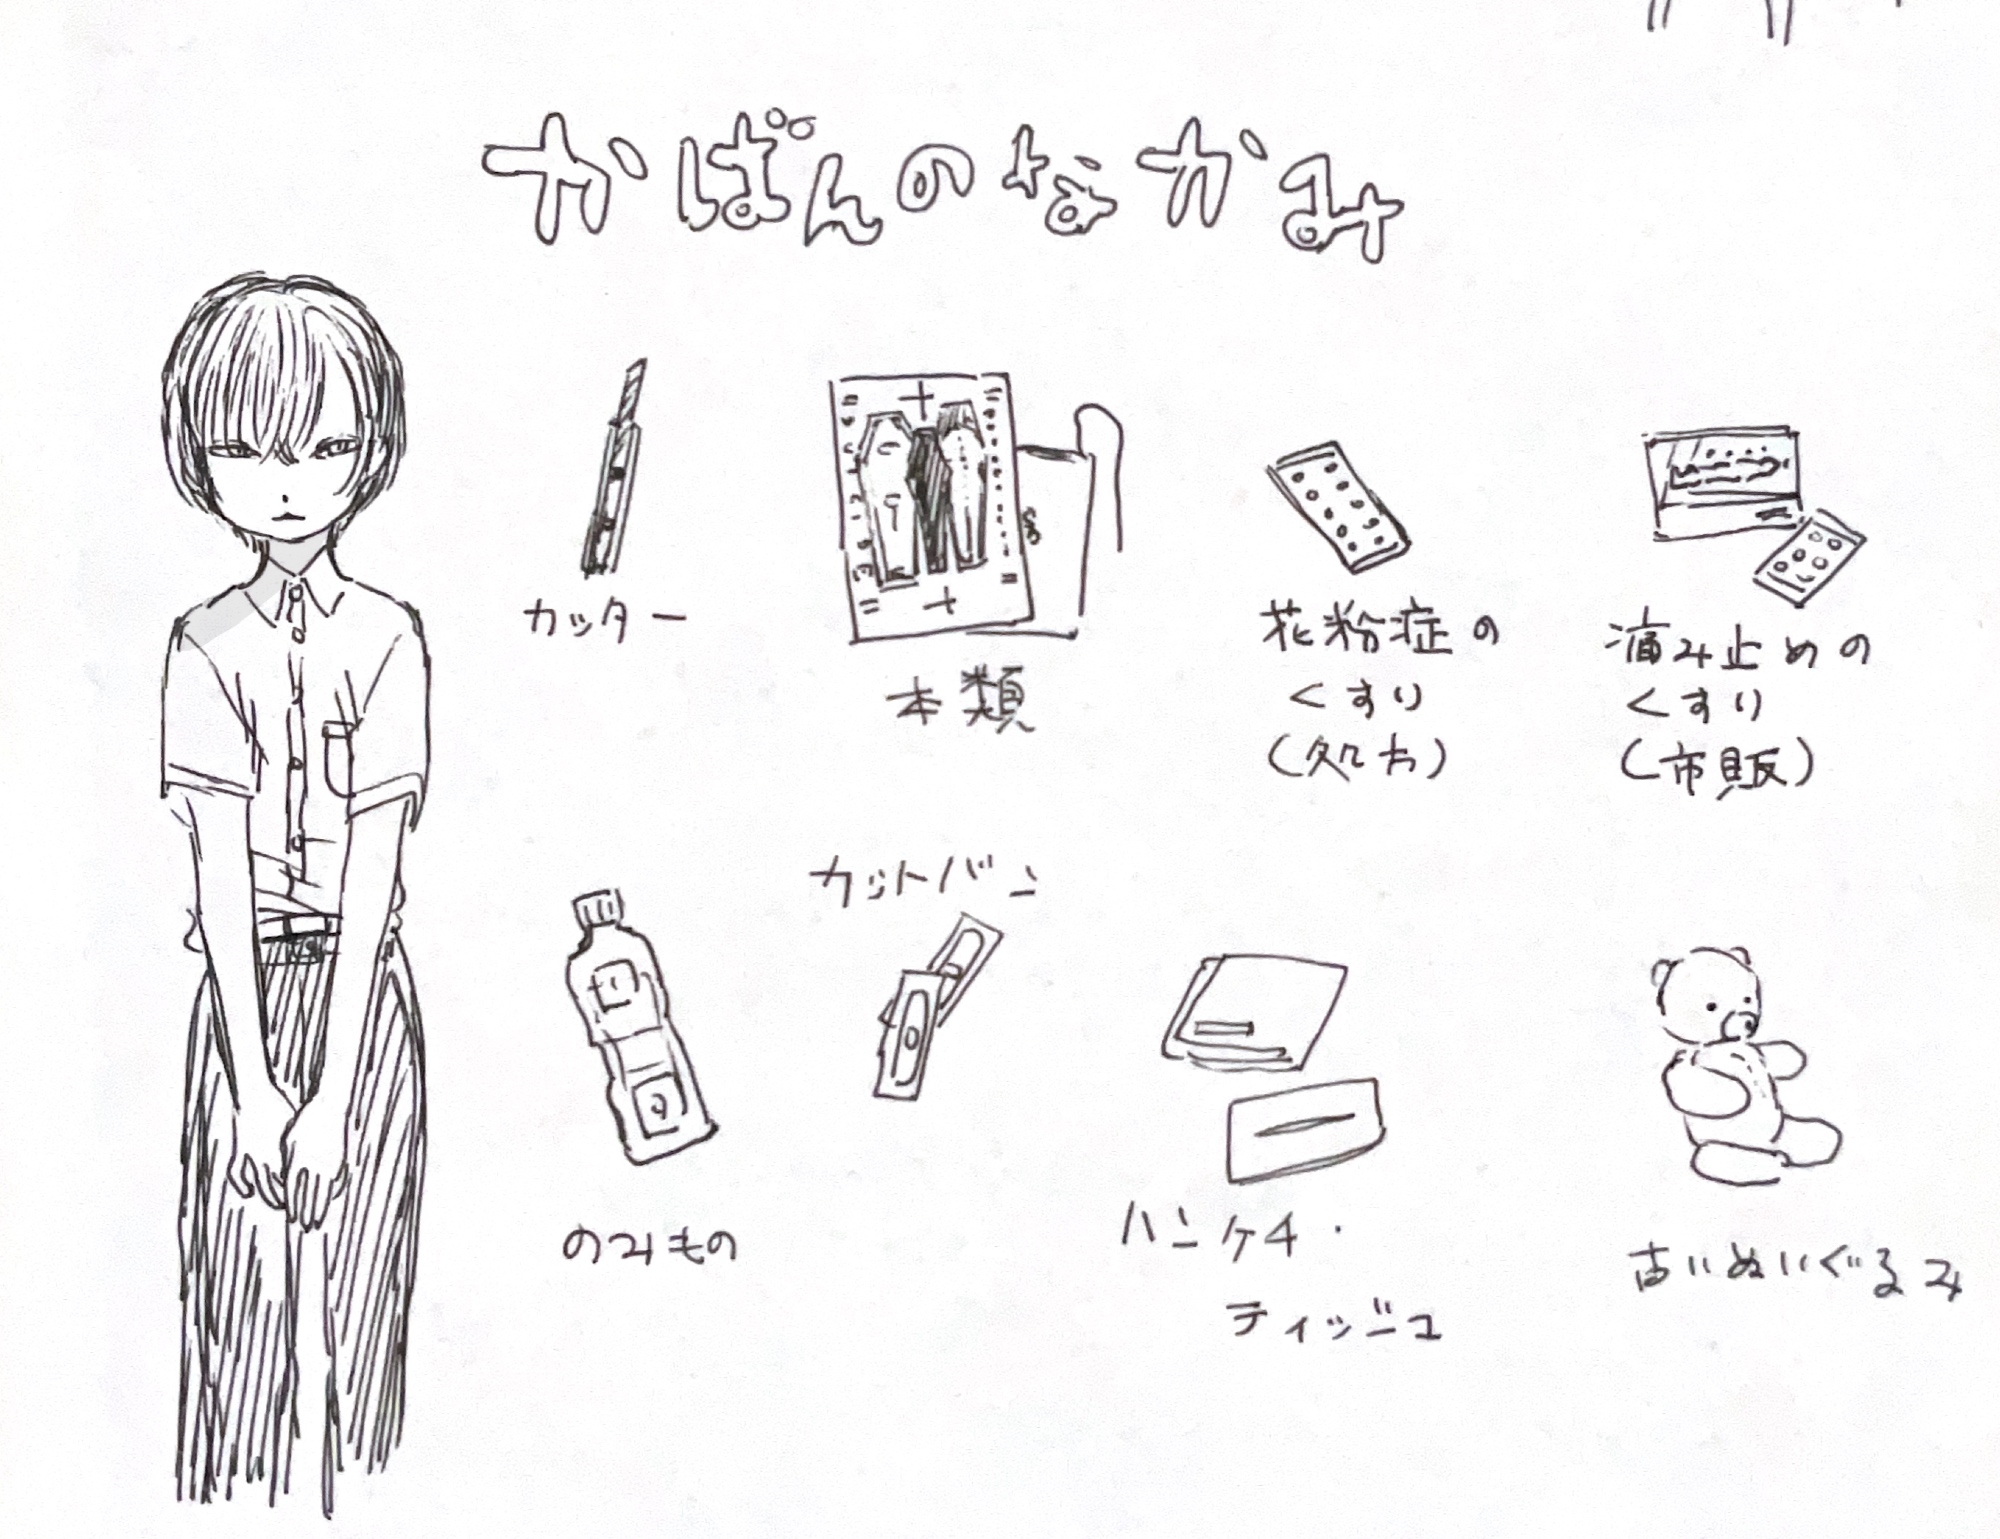 かばんのなかみ
カッター
本類
花粉症の
くすり
(処方)
痛み止めの
くすり
(市販)
のみもの
カットバン
ハンケチ・
ティッシュ
古いぬいぐるみ